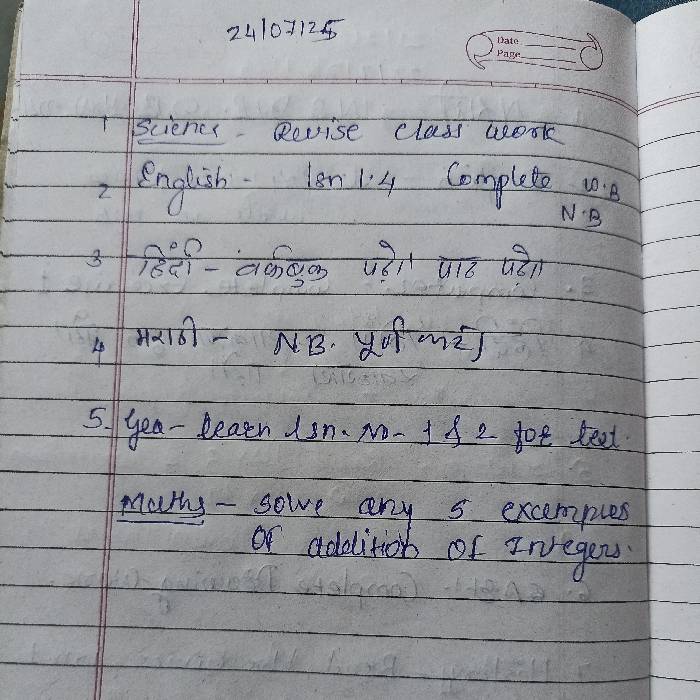 24/07/25
Date
Page
1 Science - Revise class work
2 English - lsn 1.4 Complete W.B
N.B
3 हिंदी - वर्कबुक पढ़ो। पाठ पढ़ो।
4 मराठी - N.B. पूर्ण करा
5. Geo - learn lsn. no - 1 & 2 for test.
Maths - Solve any 5 examples
of addition of Integers.